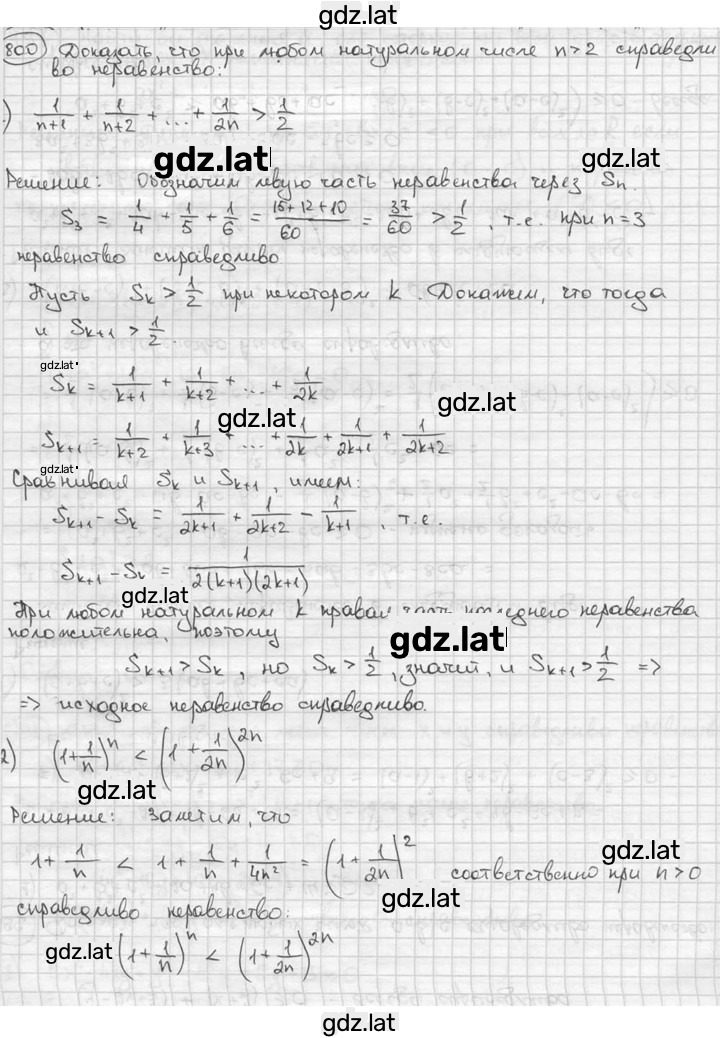 gdz.lat
800 Доказать, что при любом натуральном числе n>2 справедли
во неравенство:
) 1/(n+1) + 1/(n+2) + ... + 1/2n > 1/2
gdz.lat gdz.lat
Решение: Обозначим левую часть неравенства через Sn.
S₃ = 1/4 + 1/5 + 1/6 = (15+12+10)/60 = 37/60 > 1/2, т.е. при n=3
неравенство справедливо
Пусть Sk > 1/2 при некотором k. Докажем, что тогда
и Sk+1 > 1/2.
gdz.lat
Sk = 1/(k+1) + 1/(k+2) + ... + 1/2k
gdz.lat gdz.lat
Sk+1 = 1/(k+2) + 1/(k+3) + ... + 1/2k + 1/(2k+1) + 1/(2k+2)
gdz.lat
Сравнивая Sk и Sk+1, имеем:
Sk+1 - Sk = 1/(2k+1) + 1/(2k+2) - 1/(k+1), т.е.
Sk+1 - Sk = 1/(2(k+1)(2k+1))
gdz.lat
При любом натуральном k правая часть последнего неравенства
положительна, поэтому
gdz.lat
Sk+1 > Sk, но Sk > 1/2, значит, и Sk+1 > 1/2 =>
=> исходное неравенство справедливо.
2) (1+1/n)ⁿ < (1+1/2n)²ⁿ
gdz.lat
Решение: Заметим, что
1+1/n < 1+1/n+1/4n² = (1+1/2n)² соответственно при n>0
gdz.lat
gdz.lat
справедливо неравенство:
gdz.lat (1+1/n)ⁿ < (1+1/2n)²ⁿ
gdz.lat